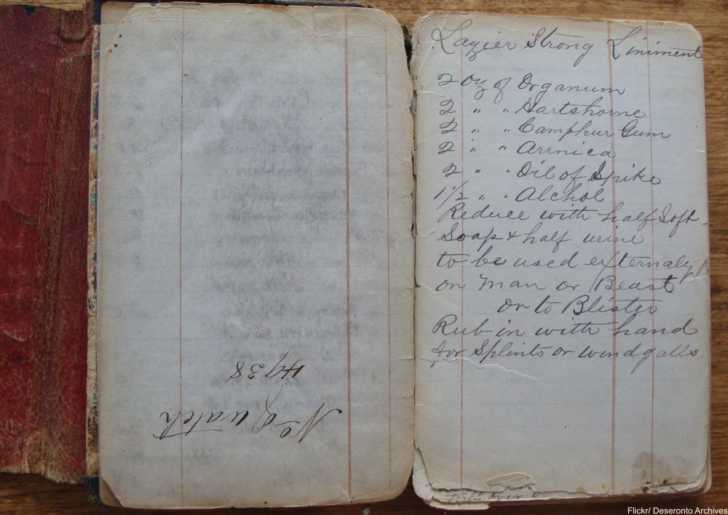 No of watch
4738
Lazier Strong Liniment
2 oz of Organum
2 " " Hartshorne
2 " " Camphur Gum
2 " " Arnica
2 " " Oil of Spike
1 1/2 " " Alchol
Reduce with half Soft
Soap & half urine
to be used externaly
on Man or Beast
or to Blister
Rub in with hand
for Splints or windgalls
Flickr/ Deseronto Archives